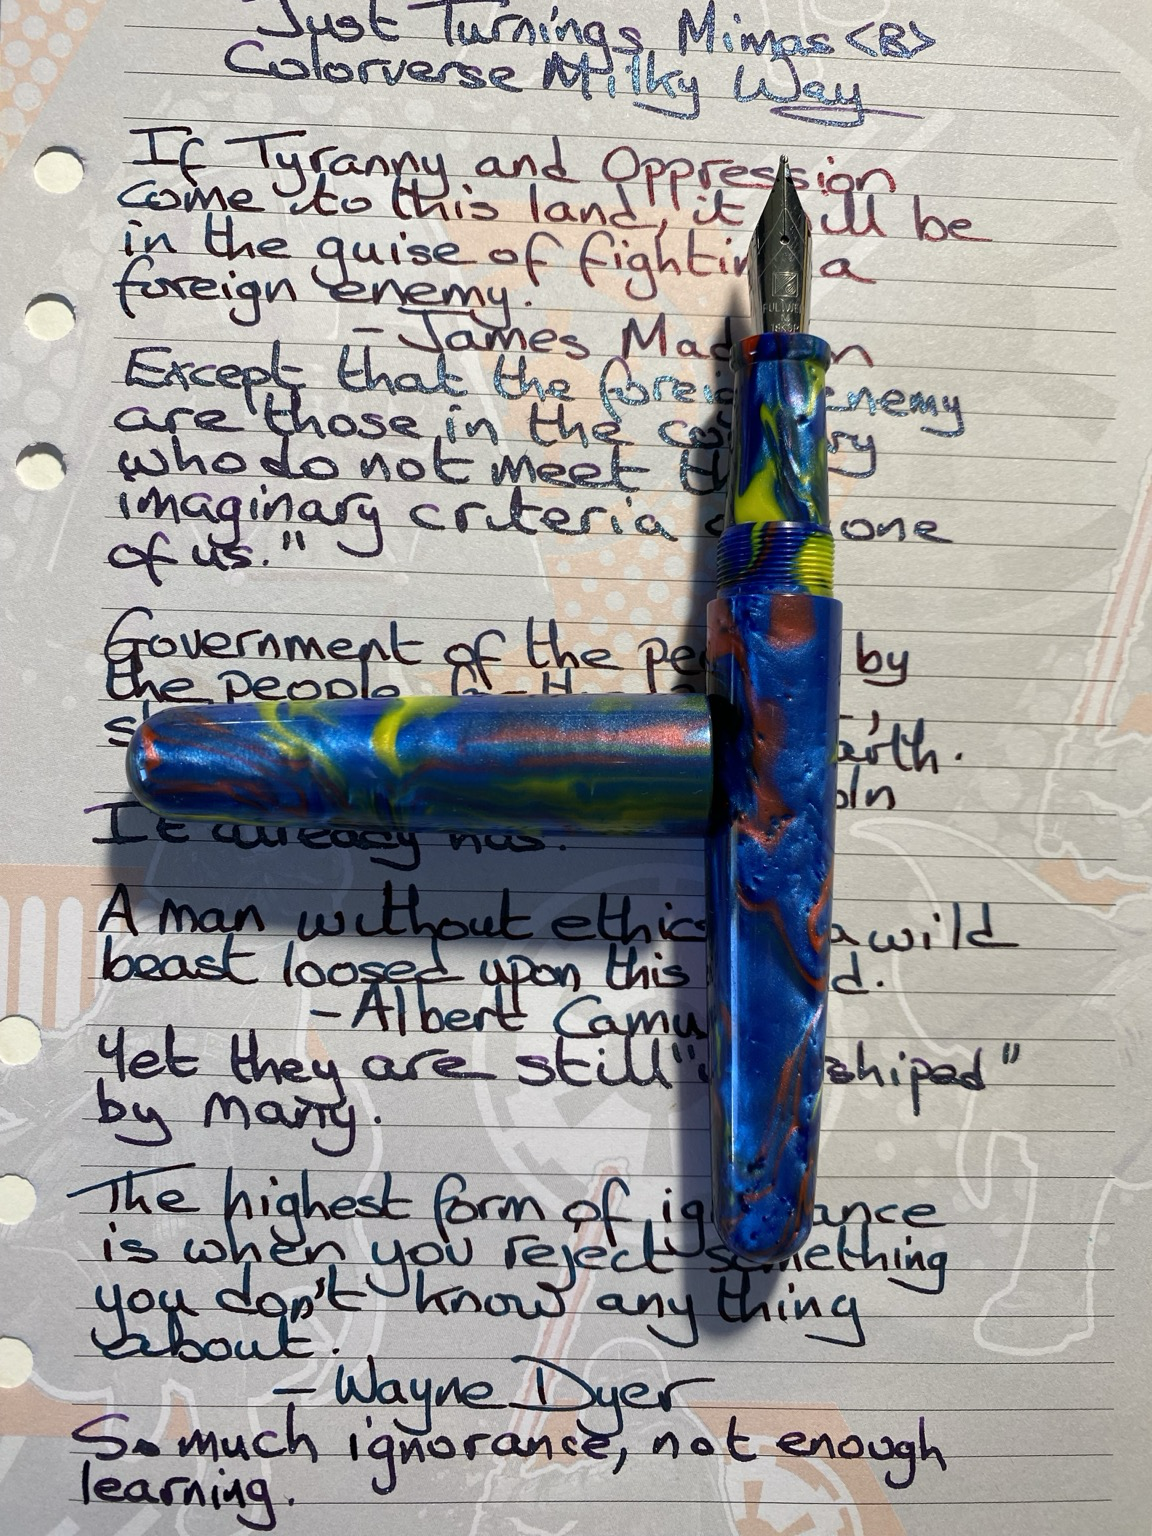 Just Turnings Mimas <B>
Colorverse Milky Way
If Tyranny and Oppression
come to this land, it will be
in the guise of fighting a
foreign enemy.
- James Mad n
Except that the foreig enemy
are those in the co ry
who do not meet th
imaginary criteria one
of us."
Government of the pe by
the people, for the
s arth.
oln
It already has.
A man without ethics a wild
beast loosed upon this d.
- Albert Camu
Yet they are still " shiped"
by many.
The highest form of ig ance
is when you reject something
you don't know anything
about.
- Wayne Dyer
So much ignorance, not enough
learning.